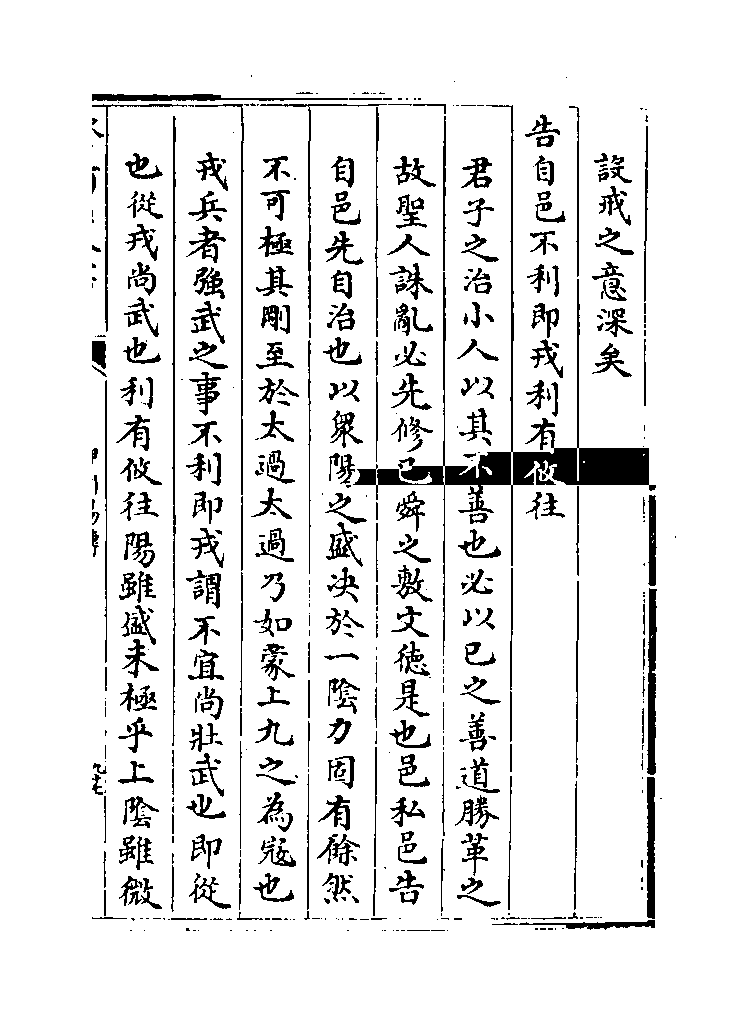 設戒之意深矣
告自邑不利即戎利有攸往
君子之治小人以其不善也必以已之善道勝革之
故聖人誅亂必先修已舜之敷文徳是也邑私邑告
自邑先自治也以衆陽之盛决於一陰力固有餘然
不可極其剛至於太過太過乃如蒙上九之為寇也
戎兵者強武之事不利即戎謂不宜尚壯武也即從
也從戎尚武也利有攸往陽雖盛未極乎上陰雖微